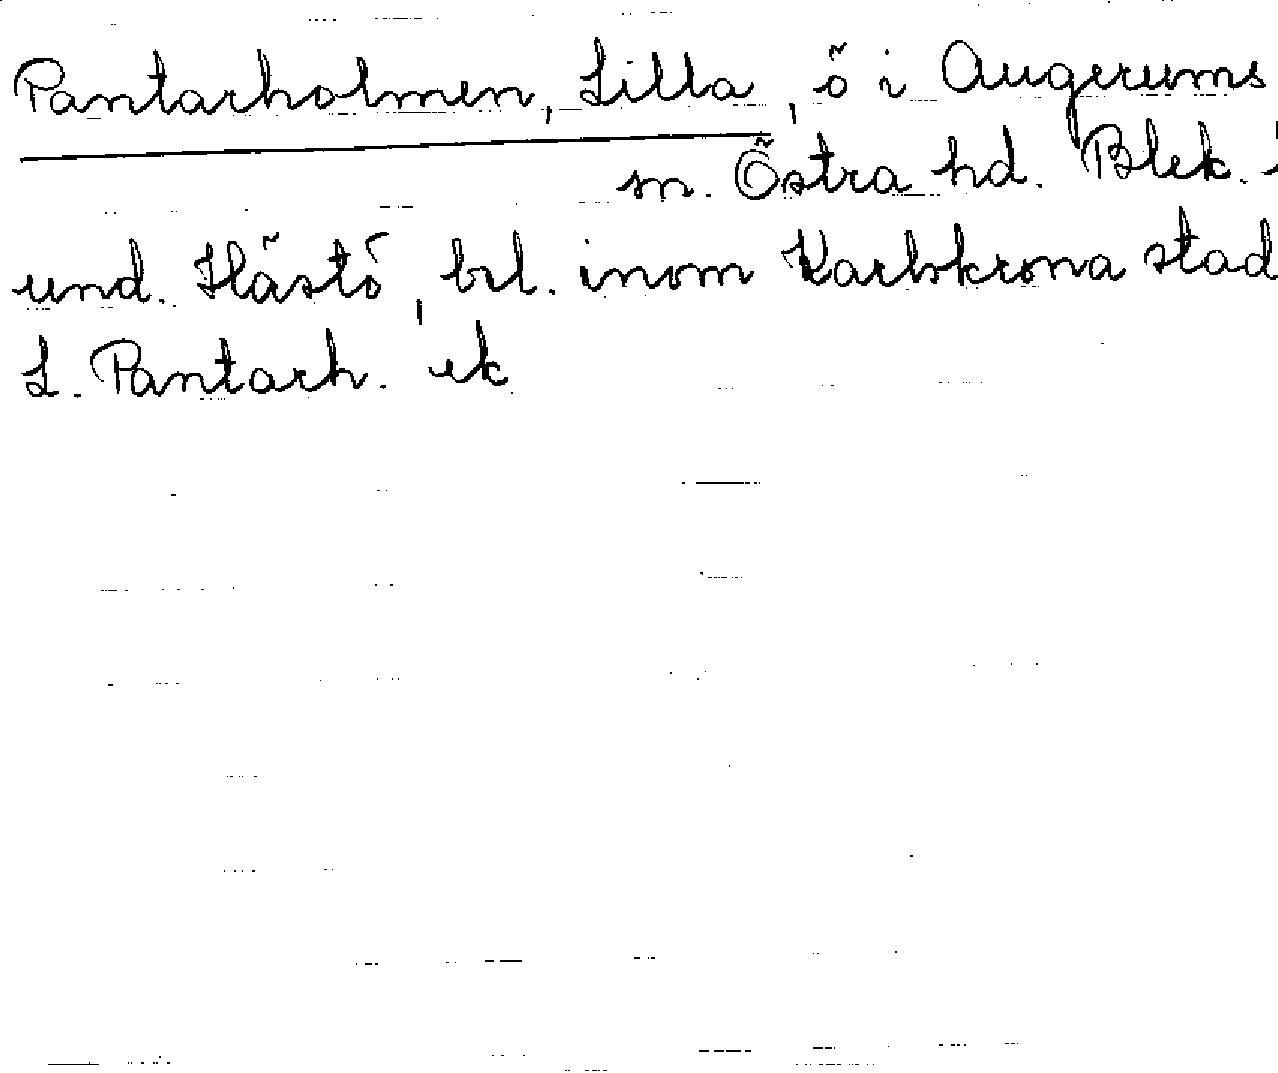 Pantarholmen, Lilla, ö i Augerums
sn. Östra hd. Blek.
und. Hästö, bel. inom Karlskrona stad
L. Pantarh. ek